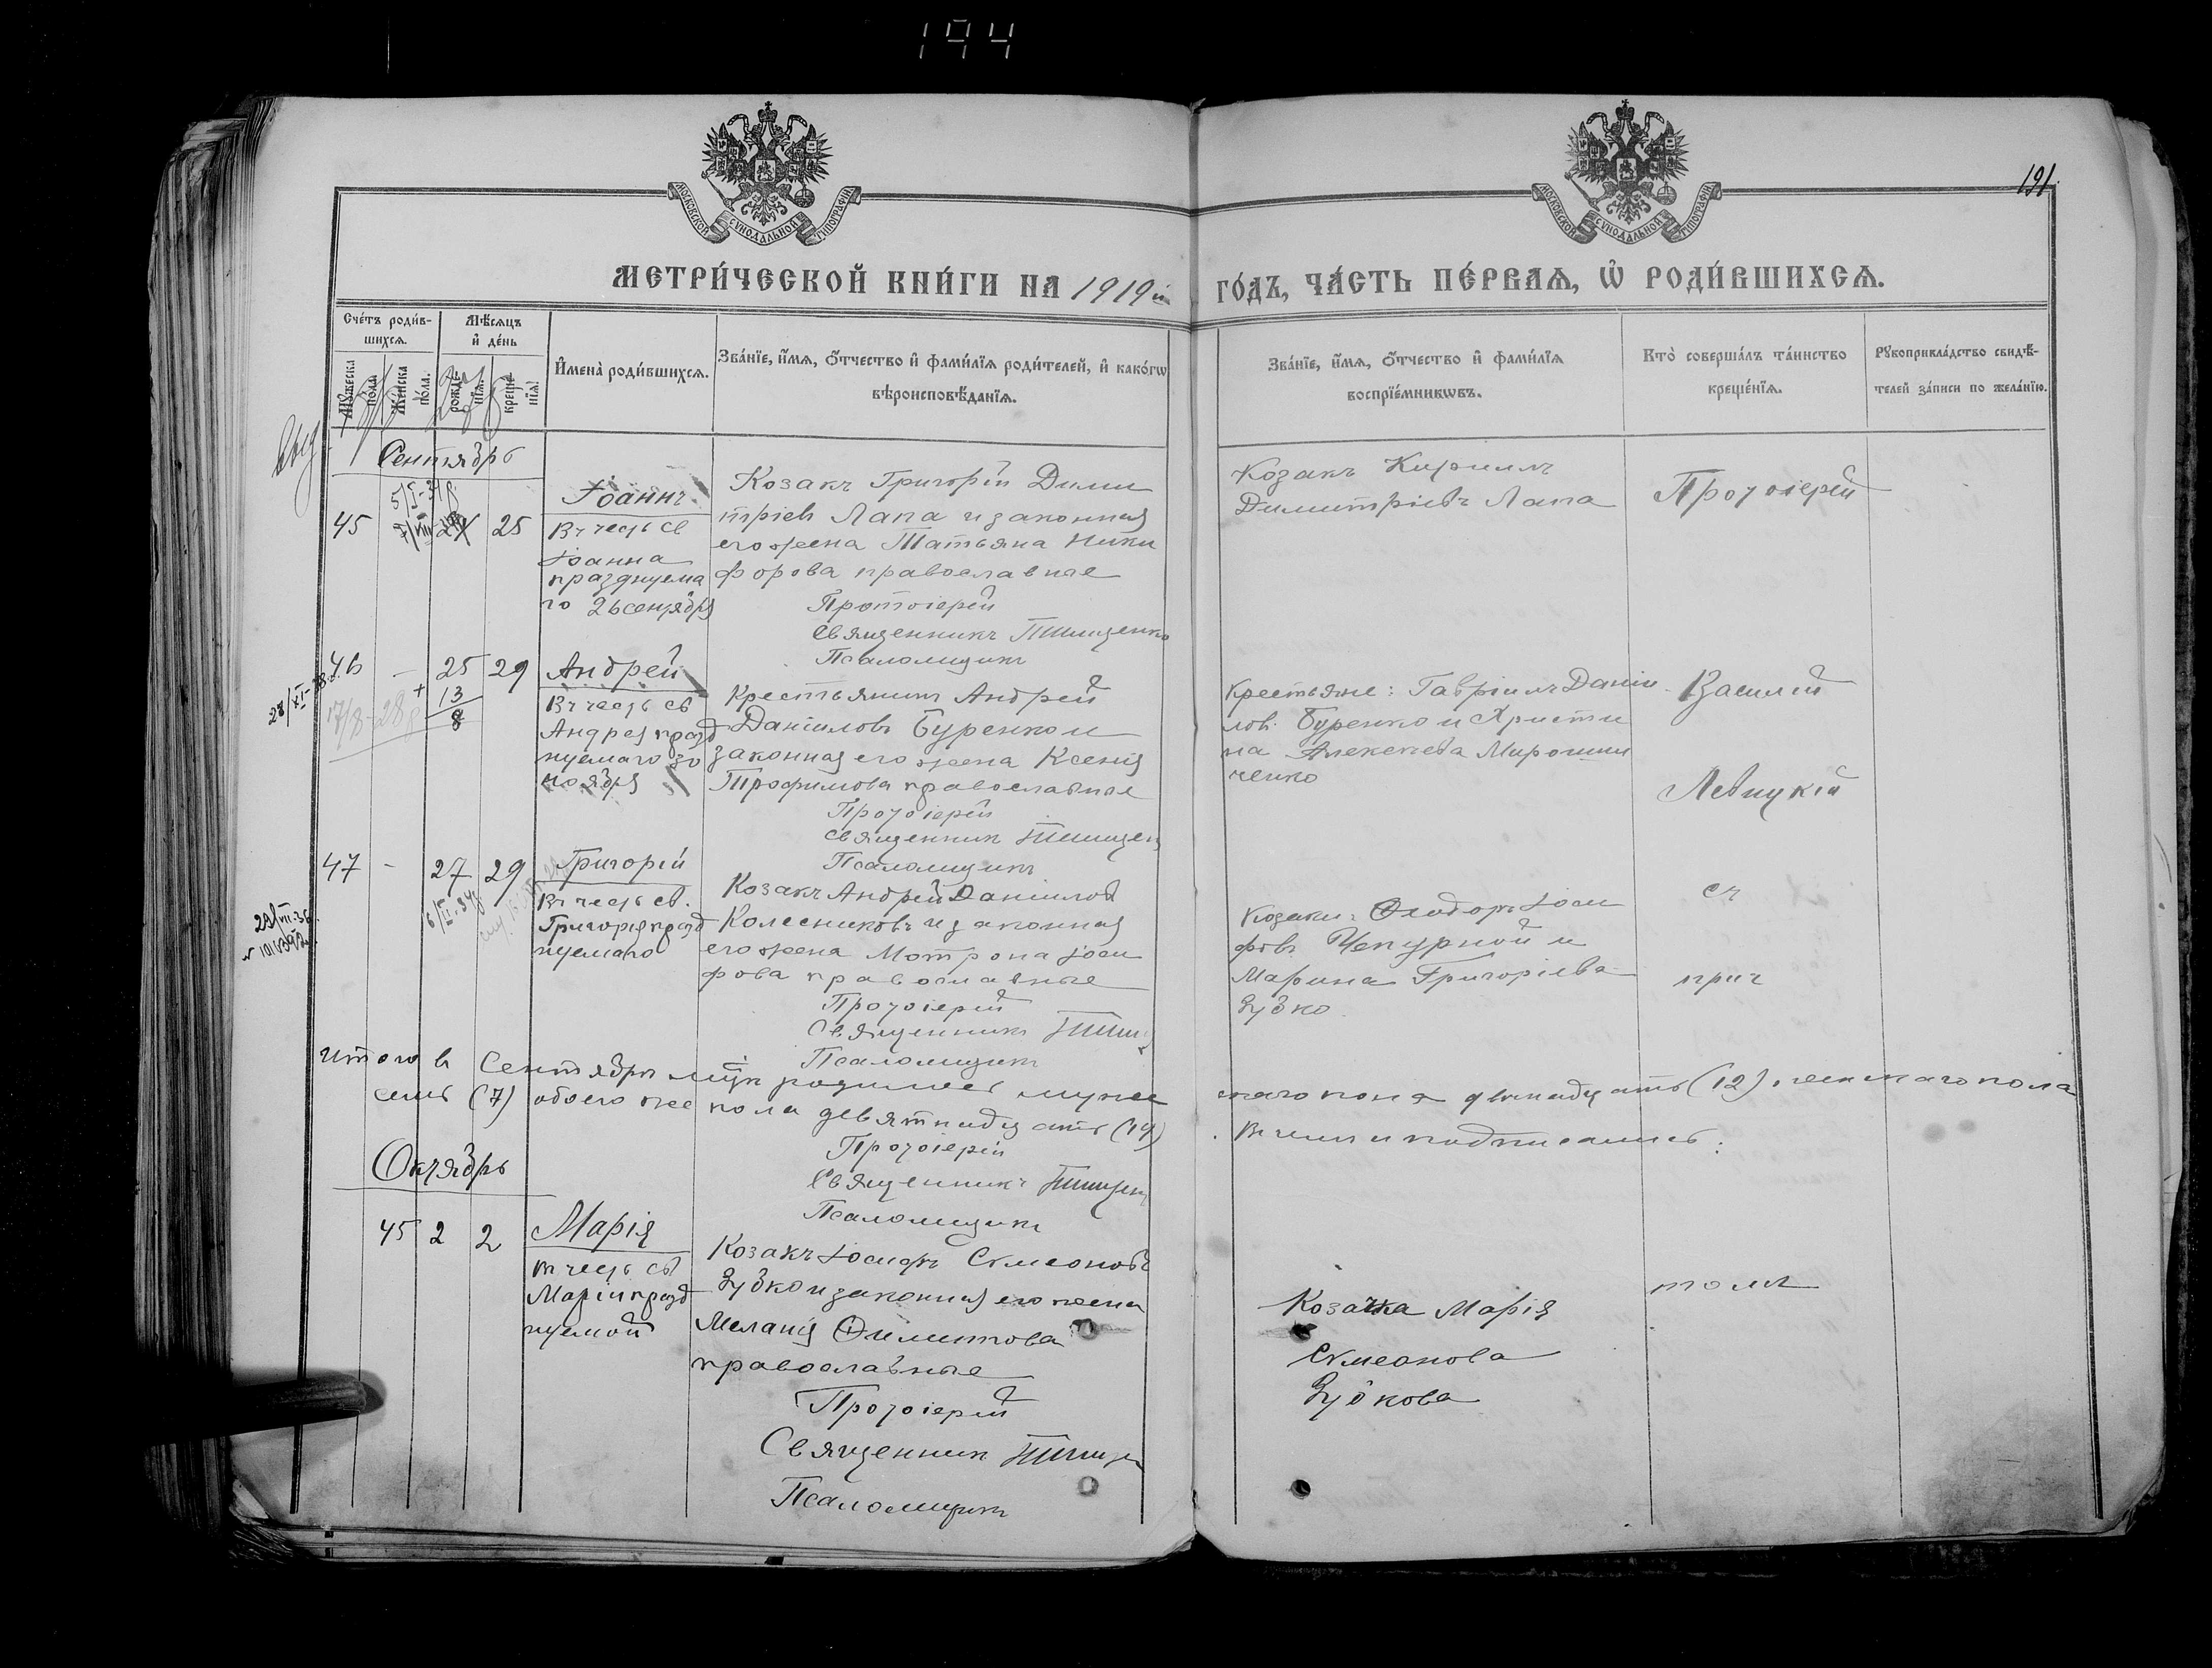 194
191
МОСКОВСКОЙ СѴНОДАЛЬНОЙ ТИПОГРАФІИ
МОСКОВСКОЙ СѴНОДАЛЬНОЙ ТИПОГРАФІИ
МЕТРИ́ЧЕСКОЙ КНИ́ГИ НА 1919й ГО́ДЪ, ЧА́СТЬ ПЕ́РВАѦ, Ѡ҆ РОДИ́ВШИХСѦ.
Сче́тъ роди́в-
шихсѧ.
Мꙋ́жеска
по́ла
Же́нска
по́ла.
Мѣ́сѧцъ
и҆ де́нь
рожде́-
нїѧ.
креще́-
нїѧ.
И҆мена̀ роди́вшихсѧ.
Зва́нїе, и҆́мѧ, ѻ҆́тчество и҆ фами́лїѧ роди́телей, и҆ како́гѡ
вѣроисповѣ́данїѧ.
Зва́нїе, и҆́мѧ, ѻ҆́тчество и҆ фами́лїѧ
воспрїе́мникѡвъ.
Кто̀ соверша́лъ та́инство
креще́нїѧ.
Рꙋкоприкла́дство свидѣ́-
телей за́писи по жела́нїю.
Сентябрь
45
25
Іоаннъ
Въ честь св
Іоанна
празднуема
го 26 сентября
Козакъ Григорій Дими
тріевъ Лапа и законная
его жена Татьяна Ники
форова православные
Протоіерей
Священникъ Тимщенко
Псаломщикъ
Козакъ Кириллъ
Димитріевъ Лапа
Протоіерей
46 - 25 29
13
8
Андрей
Въ честь св
Андрея празд
нуемаго 30
ноября
Крестьянинъ Андрей
Даніиловъ Буренко и
законная его жена Ксенія
Трофимова православные
Протоіерей
Священник
Псаломщикъ
Крестьяне: Гавріилъ Даніи
ловъ Буренко и Христи
на Алексеева Мирошни
ченко
Василій
Левицкій
47 - 27 29
Григорій
Въ честь св.
Григорія празд
нуемаго
Козакъ Андрей Даніиловъ
Колесниковъ и законная
его жена Мотрона Іоси
фова православные
Протоіерей
Священникъ
Псаломщикъ
Козаки: Ѳеодоръ Іоси
фовъ Чепурной и
Марина Григоріева
Зубко
съ
прич
Итого въ Сентябрѣ м-цѣ родилось муже
скаго пола двѣнадцать (12), женскаго пола
семь (7) обоего же пола девятнадцать (19)
. Въ чемъ и подписались:
Протоіерей
Священникъ
Псаломщикъ
Октябрь
45 2 2
Марія
въ честь св
Маріи празд
нуемой
Козакъ Іосифъ Сѵмеоновъ
Зубко и законная его жена
Меланія Филиппова
православные
Протоіерей
Священник
Псаломщикъ
Козачка Марія
Сѵмеонова
Зубкова
томъ